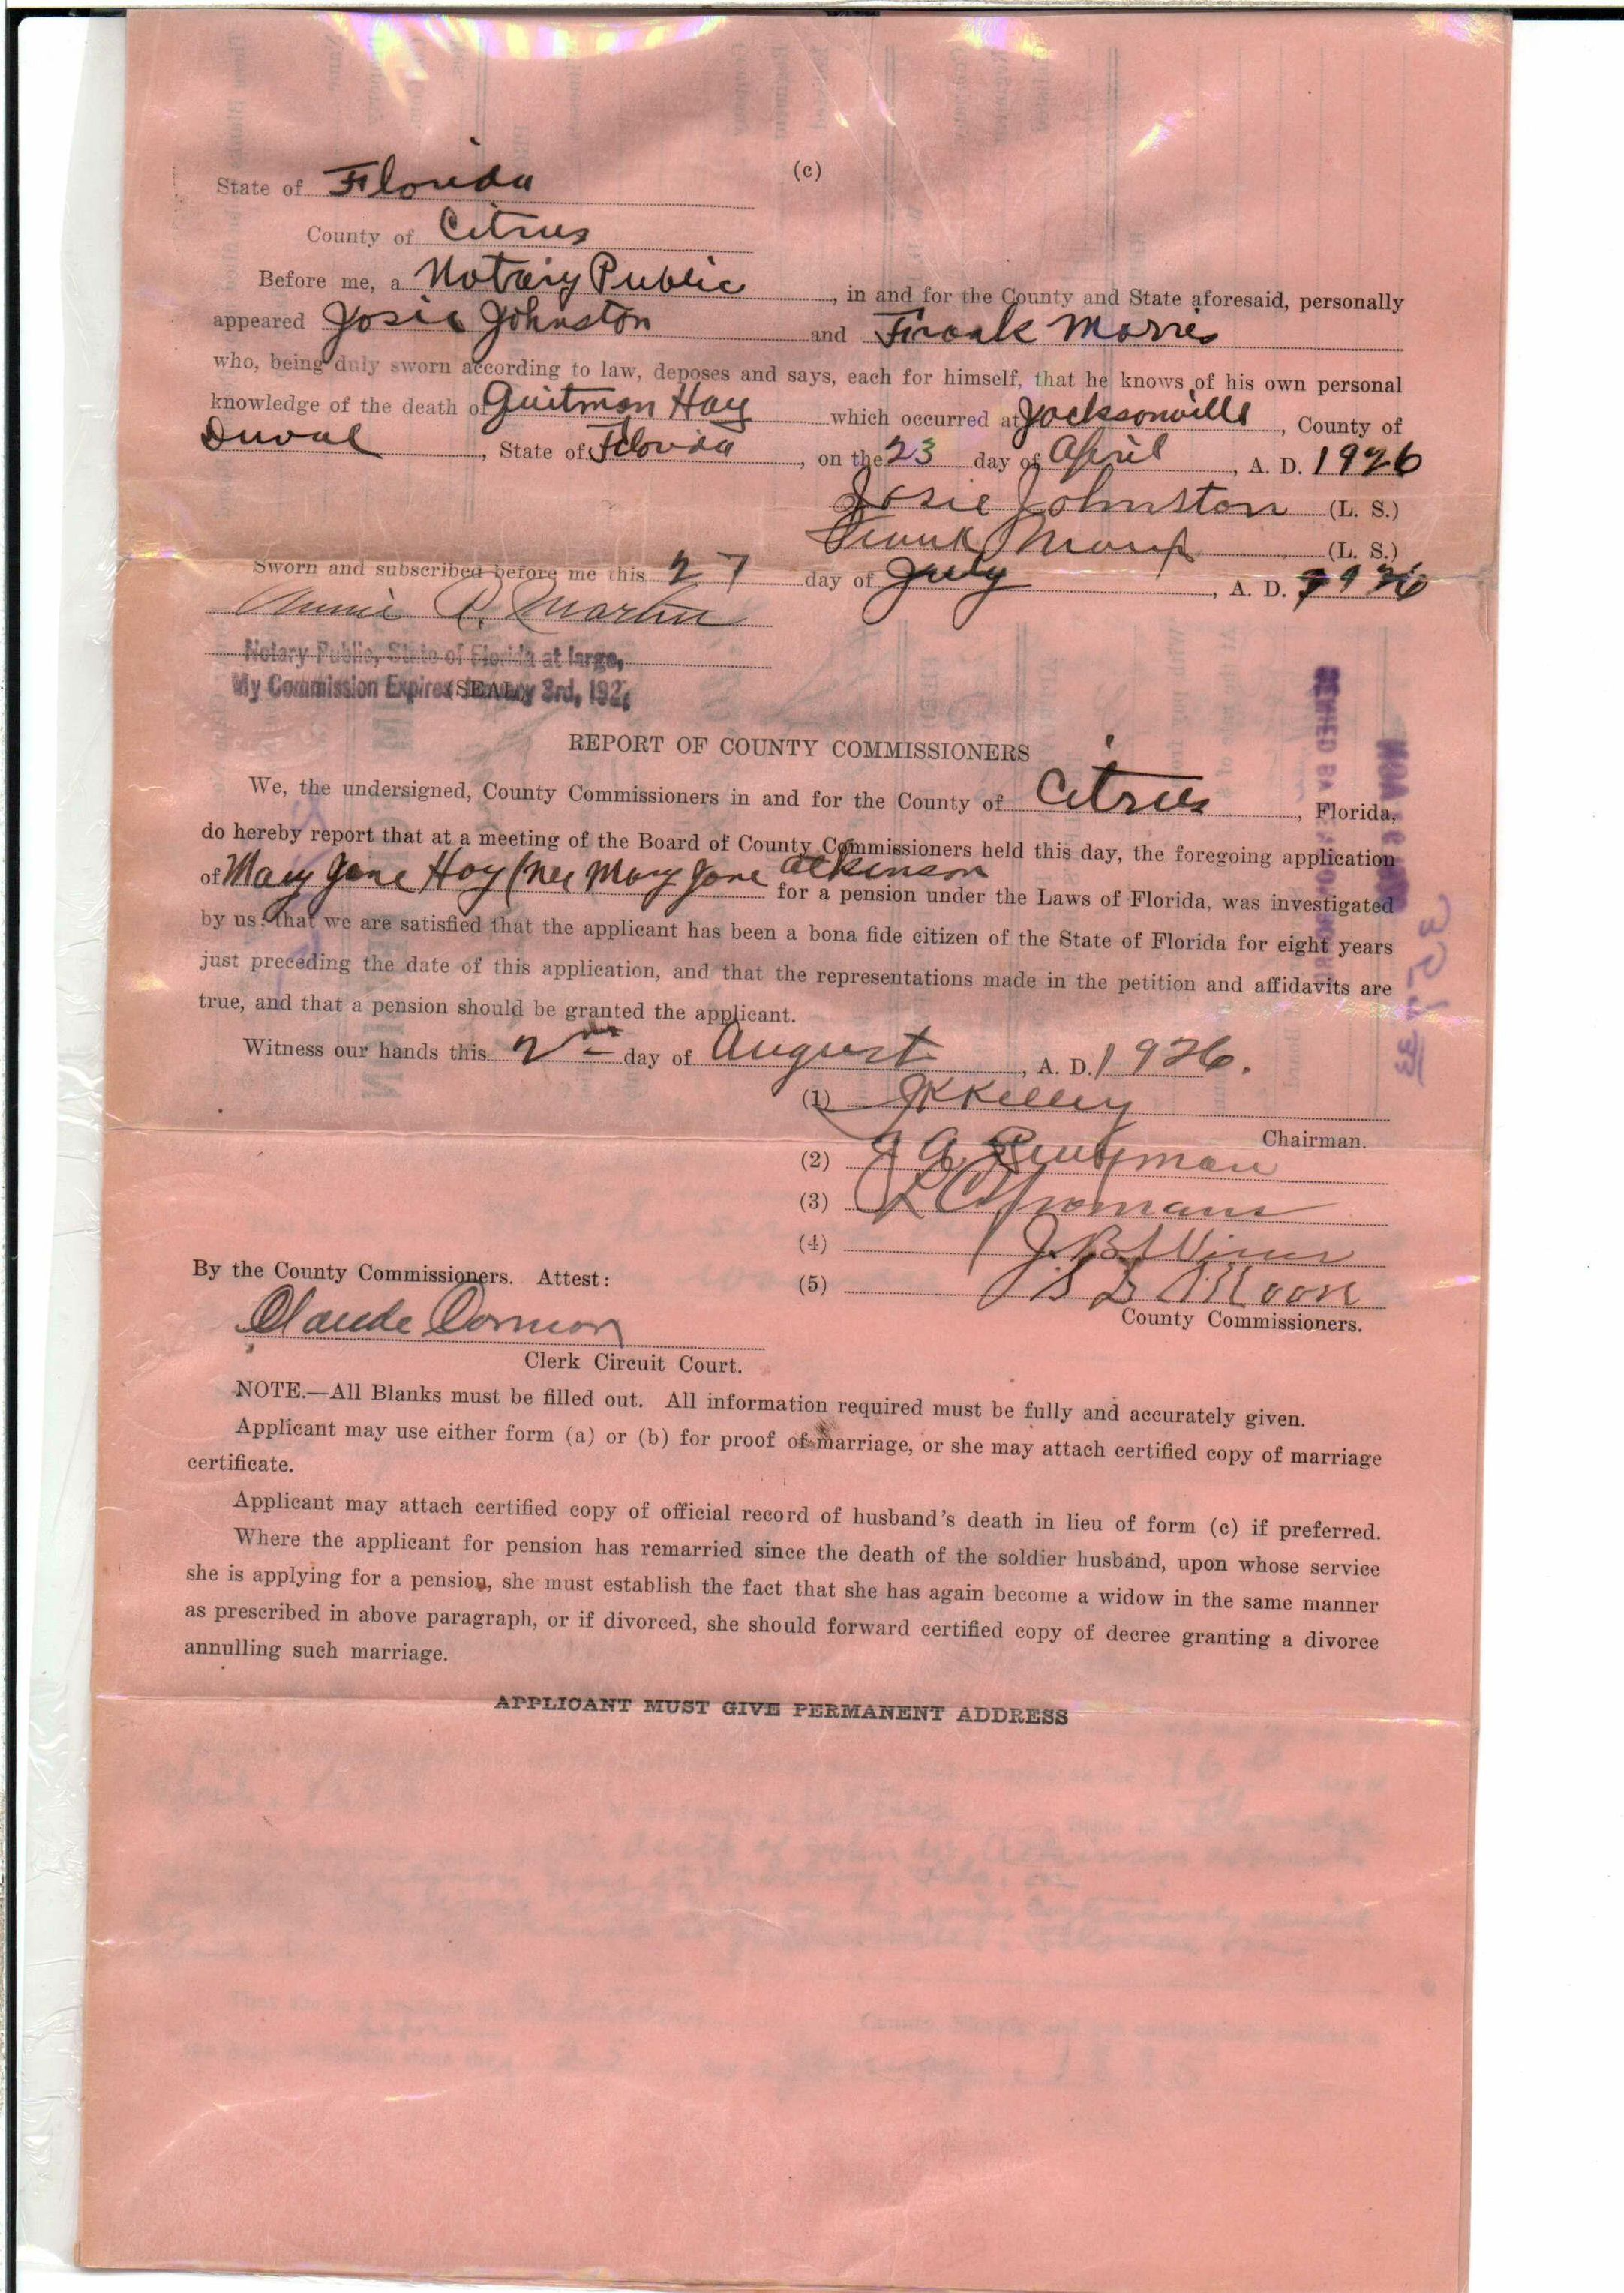 (c)
State of Florida
County of Citrus
Before me, a Notary Public, in and for the County and State aforesaid, personally
appeared Josie Johnston and Frank Morris
who, being duly sworn according to law, deposes and says, each for himself, that he knows of his own personal
knowledge of the death of Guitman Hay which occurred at Jacksonville, County of
Duval, State of Florida, on the 23 day of April, A. D. 1926
Josie Johnston (L. S.)
Frank Morris (L. S.)
Sworn and subscribed before me this 27 day of July, A. D. 1926
Annie Martin
Notary Public, State of Florida at large,
My Commission Expires 3rd, 192
(SEAL)
REPORT OF COUNTY COMMISSIONERS
We, the undersigned, County Commissioners in and for the County of Citrus, Florida,
do hereby report that at a meeting of the Board of County Commissioners held this day, the foregoing application
of Mary Jane Hay (nee Mary Jane Atkinson for a pension under the Laws of Florida, was investigated
by us; that we are satisfied that the applicant has been a bona fide citizen of the State of Florida for eight years
just preceding the date of this application, and that the representations made in the petition and affidavits are
true, and that a pension should be granted the applicant.
Witness our hands this 2nd day of August, A. D. 1926.
(1) JK Kelley
Chairman.
(2)
(3)
(4) J. B.
(5) Moon
County Commissioners.
By the County Commissioners. Attest:
Claude Connor
Clerk Circuit Court.
NOTE.—All Blanks must be filled out. All information required must be fully and accurately given.
Applicant may use either form (a) or (b) for proof of marriage, or she may attach certified copy of marriage
certificate.
Applicant may attach certified copy of official record of husband's death in lieu of form (c) if preferred.
Where the applicant for pension has remarried since the death of the soldier husband, upon whose service
she is applying for a pension, she must establish the fact that she has again become a widow in the same manner
as prescribed in above paragraph, or if divorced, she should forward certified copy of decree granting a divorce
annulling such marriage.
APPLICANT MUST GIVE PERMANENT ADDRESS